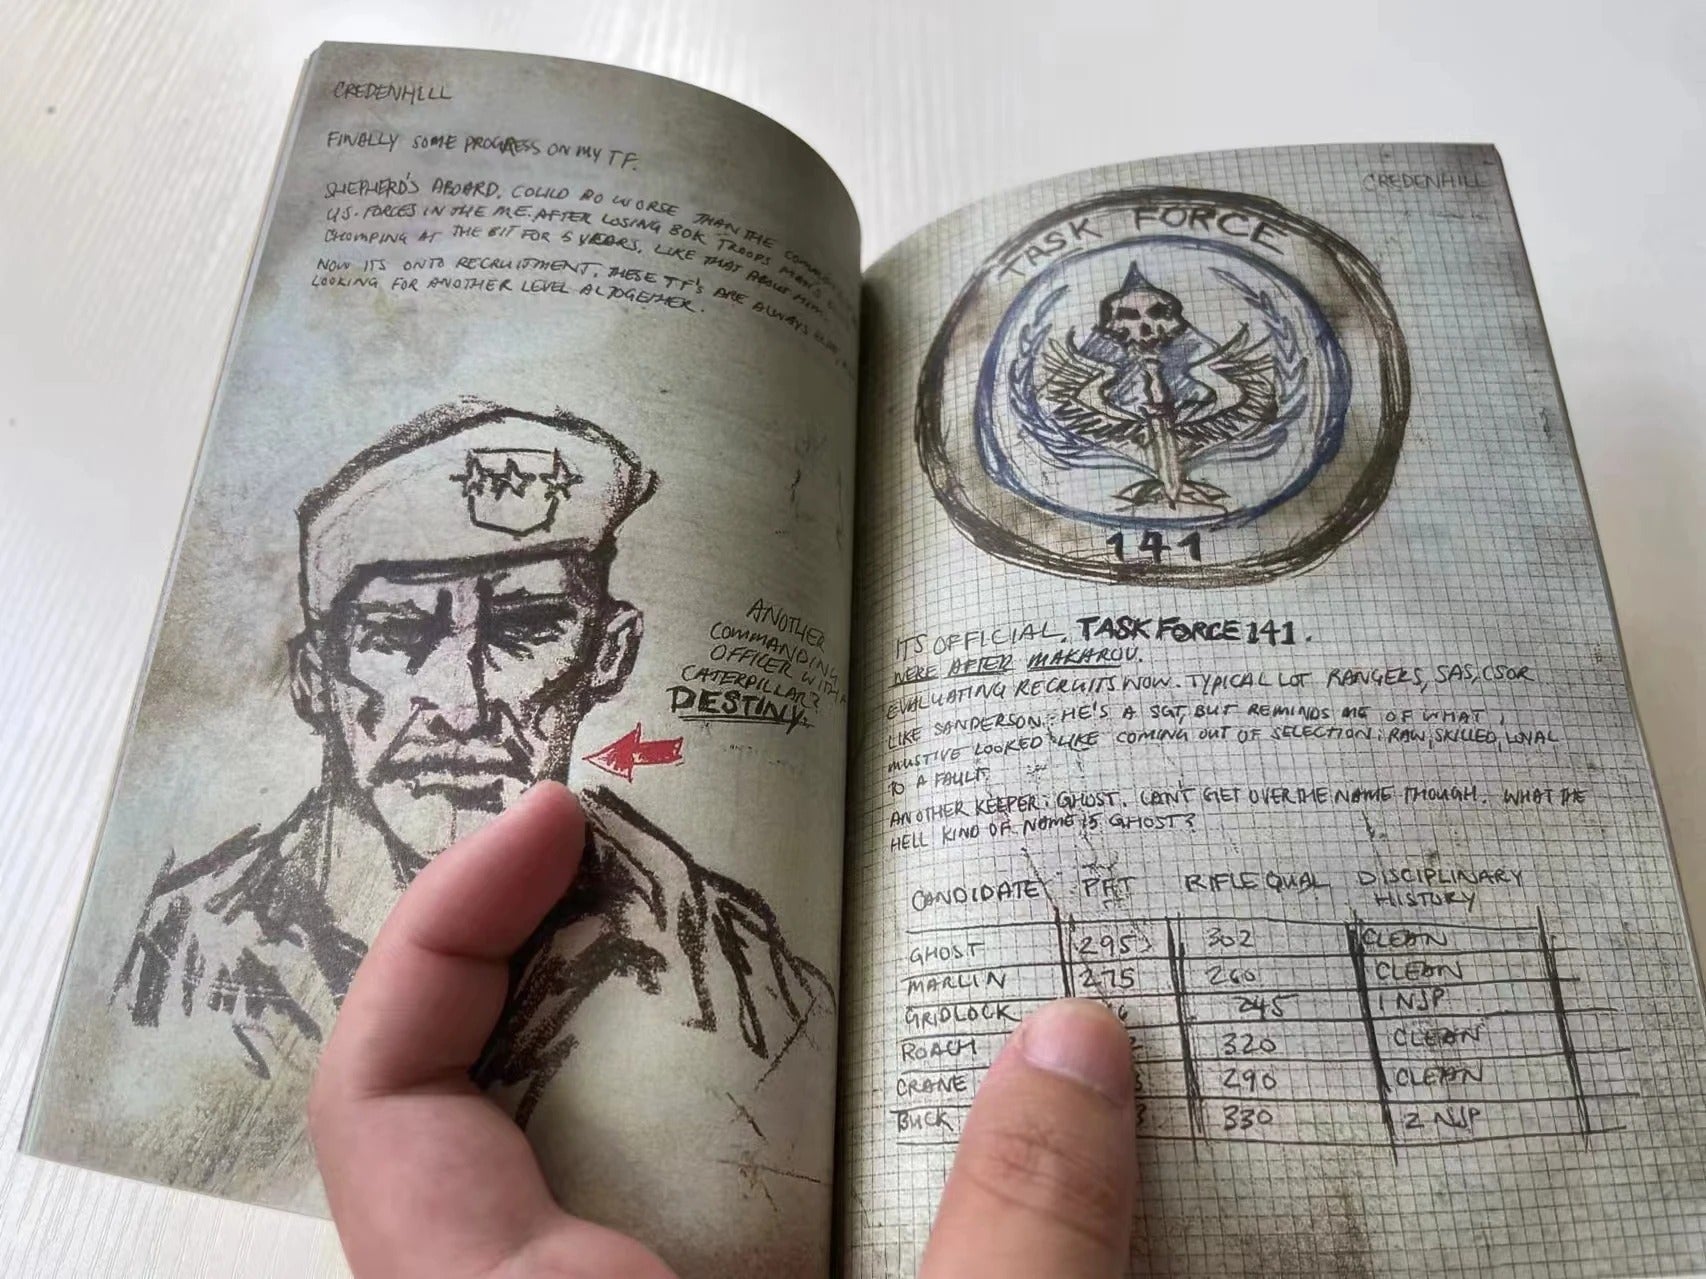 CREDENHILL
FINALLY SOME PROGRESS ON MY TF.
SHEPHERD'S ABOARD. COULD DO WORSE THAN THE
U.S. FORCES IN THE ME. AFTER LOSING 30K TROOPS MAN'S
CHOMPING AT THE BIT FOR 5 YEARS. LIKE THAT ABOUT HIM.
NOW ITS ONTO RECRUITMENT. THESE TF'S ARE ALWAYS
LOOKING FOR ANOTHER LEVEL ALTOGETHER.
ANOTHER
COMMANDING
OFFICER WITH A
CATERPILLAR?
DESTINY.
CREDENHILL
TASK FORCE
141
ITS OFFICIAL. TASK FORCE 141.
WERE AFTER MAKAROV.
EVALUATING RECRUITS NOW. TYPICAL LOT RANGERS, SAS, CSOR
LIKE SANDERSON. HE'S A SGT, BUT REMINDS ME OF WHAT I
MUSTIVE LOOKED LIKE COMING OUT OF SELECTION: RAW, SKILLED, LOYAL
TO A FAULT.
ANOTHER KEEPER: GHOST. CAN'T GET OVER THE NAME THOUGH. WHAT THE
HELL KIND OF NAME IS GHOST?
CANDIDATE PFT RIFLE QUAL DISCIPLINARY
HISTORY
GHOST 295 302 CLEAN
MARLIN 275 260 CLEAN
GRIDLOCK 245 1 NJP
ROACH 320 CLEAN
CRANE 290 CLEAN
BUCK 330 2 NJP